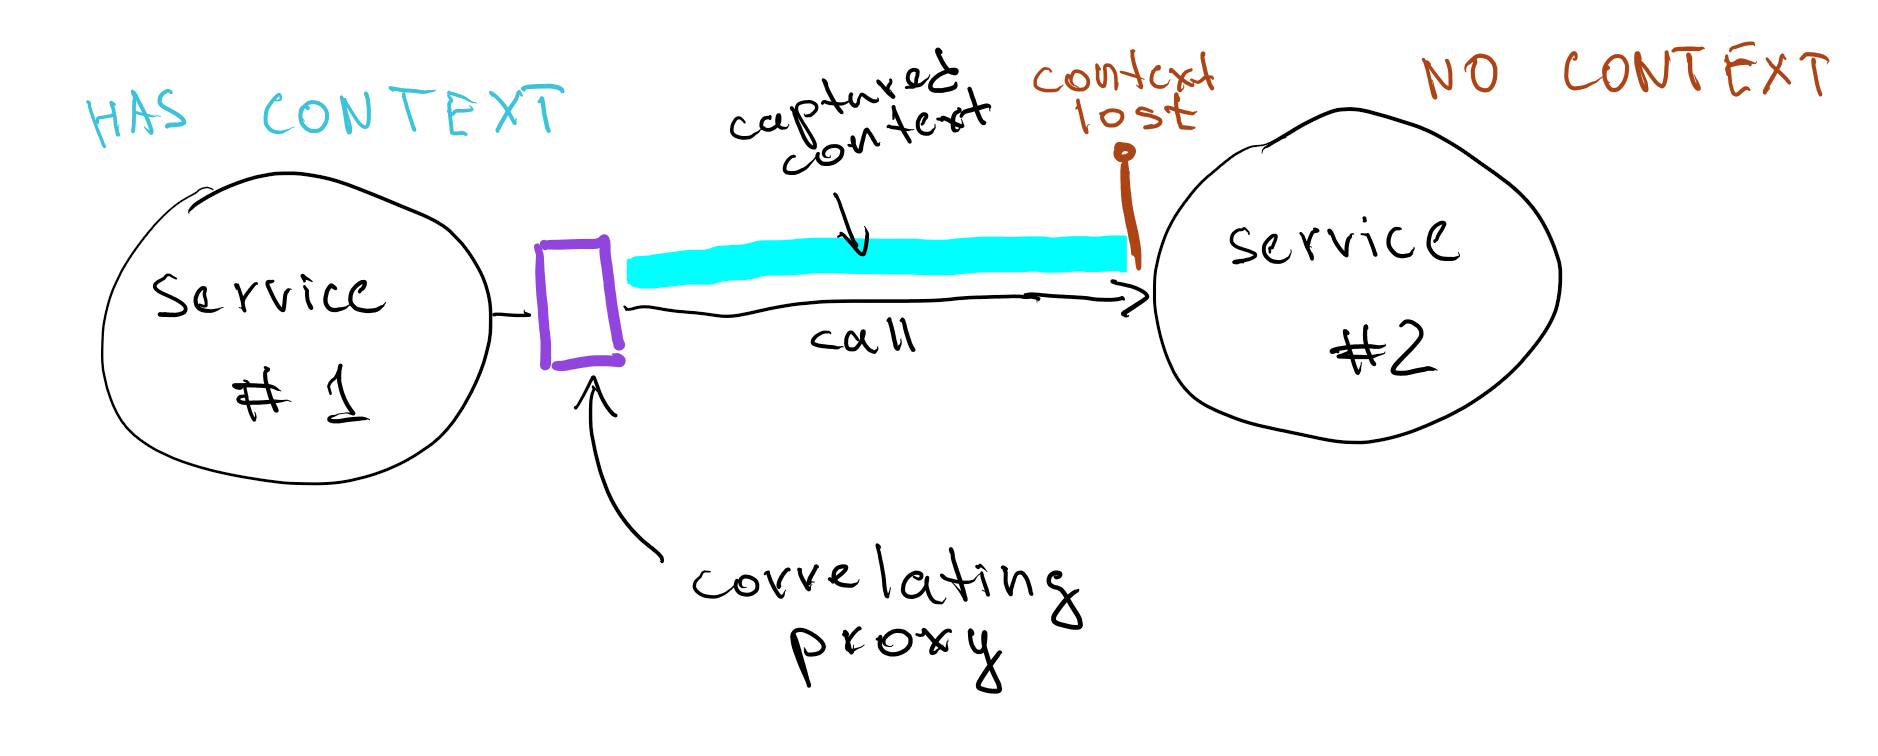 HAS CONTEXT
captured
context
context
lost
NO CONTEXT
service
# 1
call
service
#2
correlating
proxy